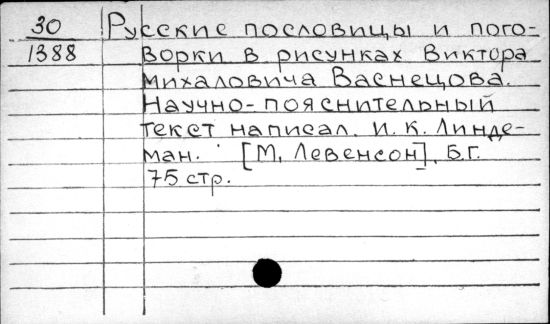 30
1388
Русские пословицы и пого-
ворки в рисунках Виктора
Михаловича Васнецова.
Научно-пояснительный
текст написал. И. К. Линде-
ман. [М, Левенсон], Б.Г.
75 стр.